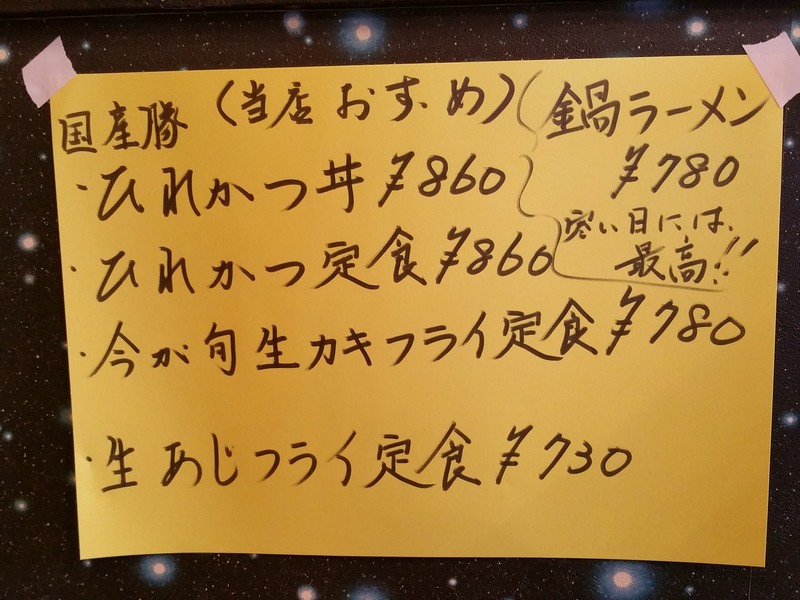 国産豚（当店おすゝめ）
・ひれかつ丼 ¥860
・ひれかつ定食 ¥860
・今が旬生カキフライ定食 ¥780
・生あじフライ定食 ¥730
鍋ラーメン
¥780
寒い日には、
最高!!